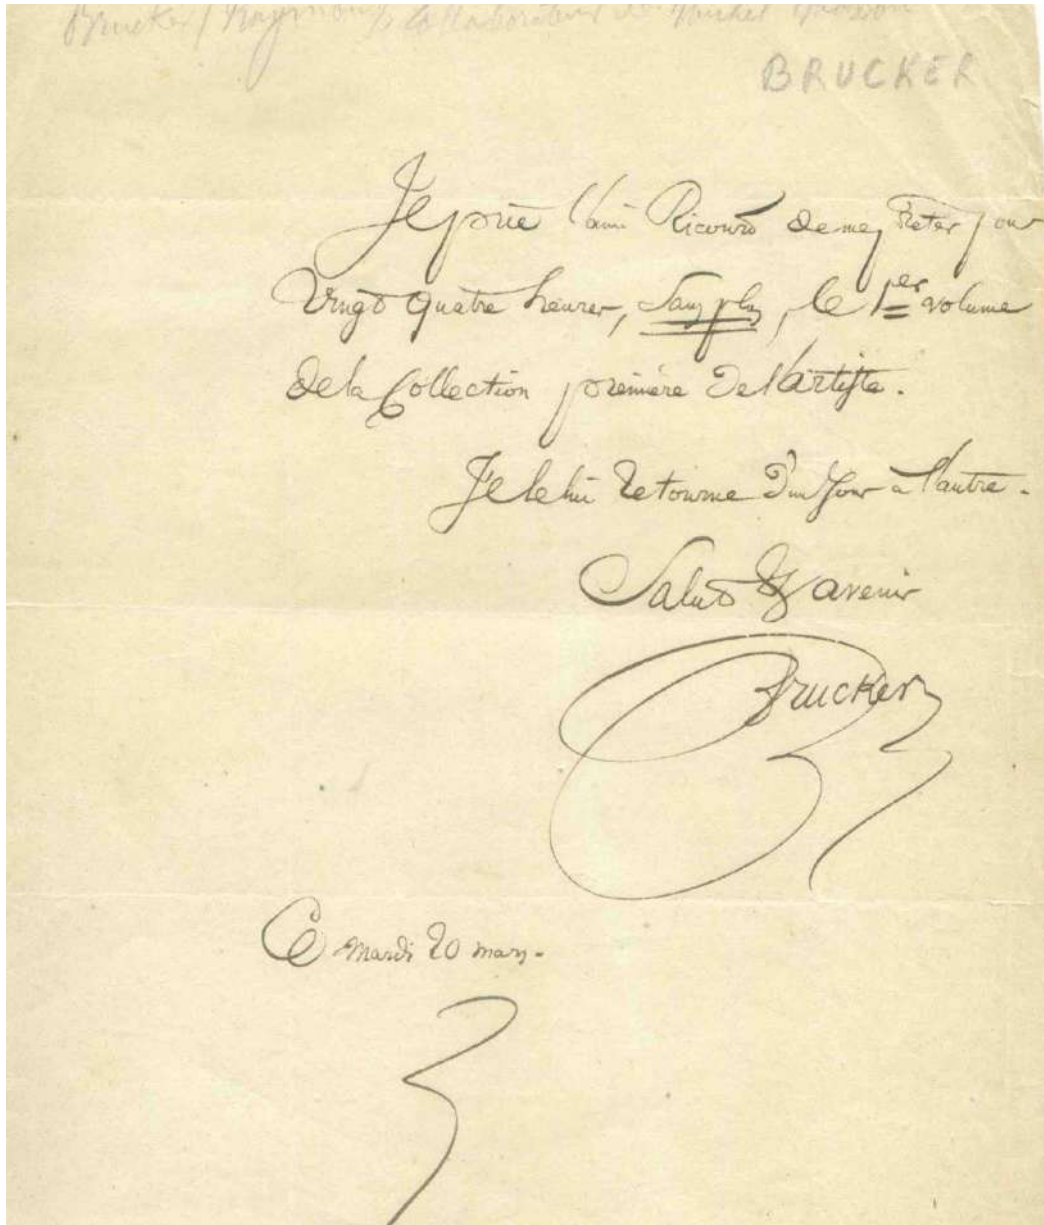 Brucker (Raymond) collaborateur de Michel Masson
BRUCKER
Je prie l'ami Ricourt de me prêter pour
Vingt quatre heures, sans plus, le 1er volume
de la Collection première de l'artiste.
Je le lui retourne d'un jour à l'autre.
Salut & avenir
Brucker
Ce mardi 20 mars.